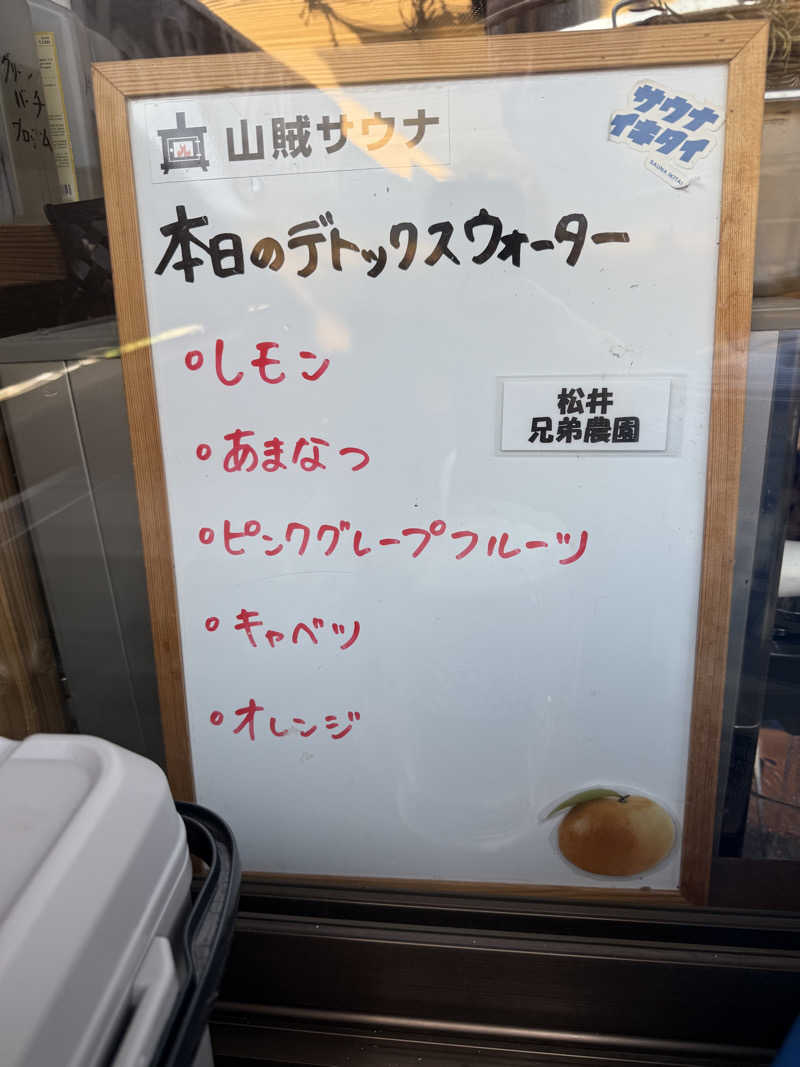 山賊サウナ
サウナ
イキタイ
SAUNA IKITAI
本日のデトックスウォーター
°レモン
°あまなつ
松井
兄弟農園
°ピンクグレープフルーツ
°キャベツ
°オレンジ
グリーン
バーチ